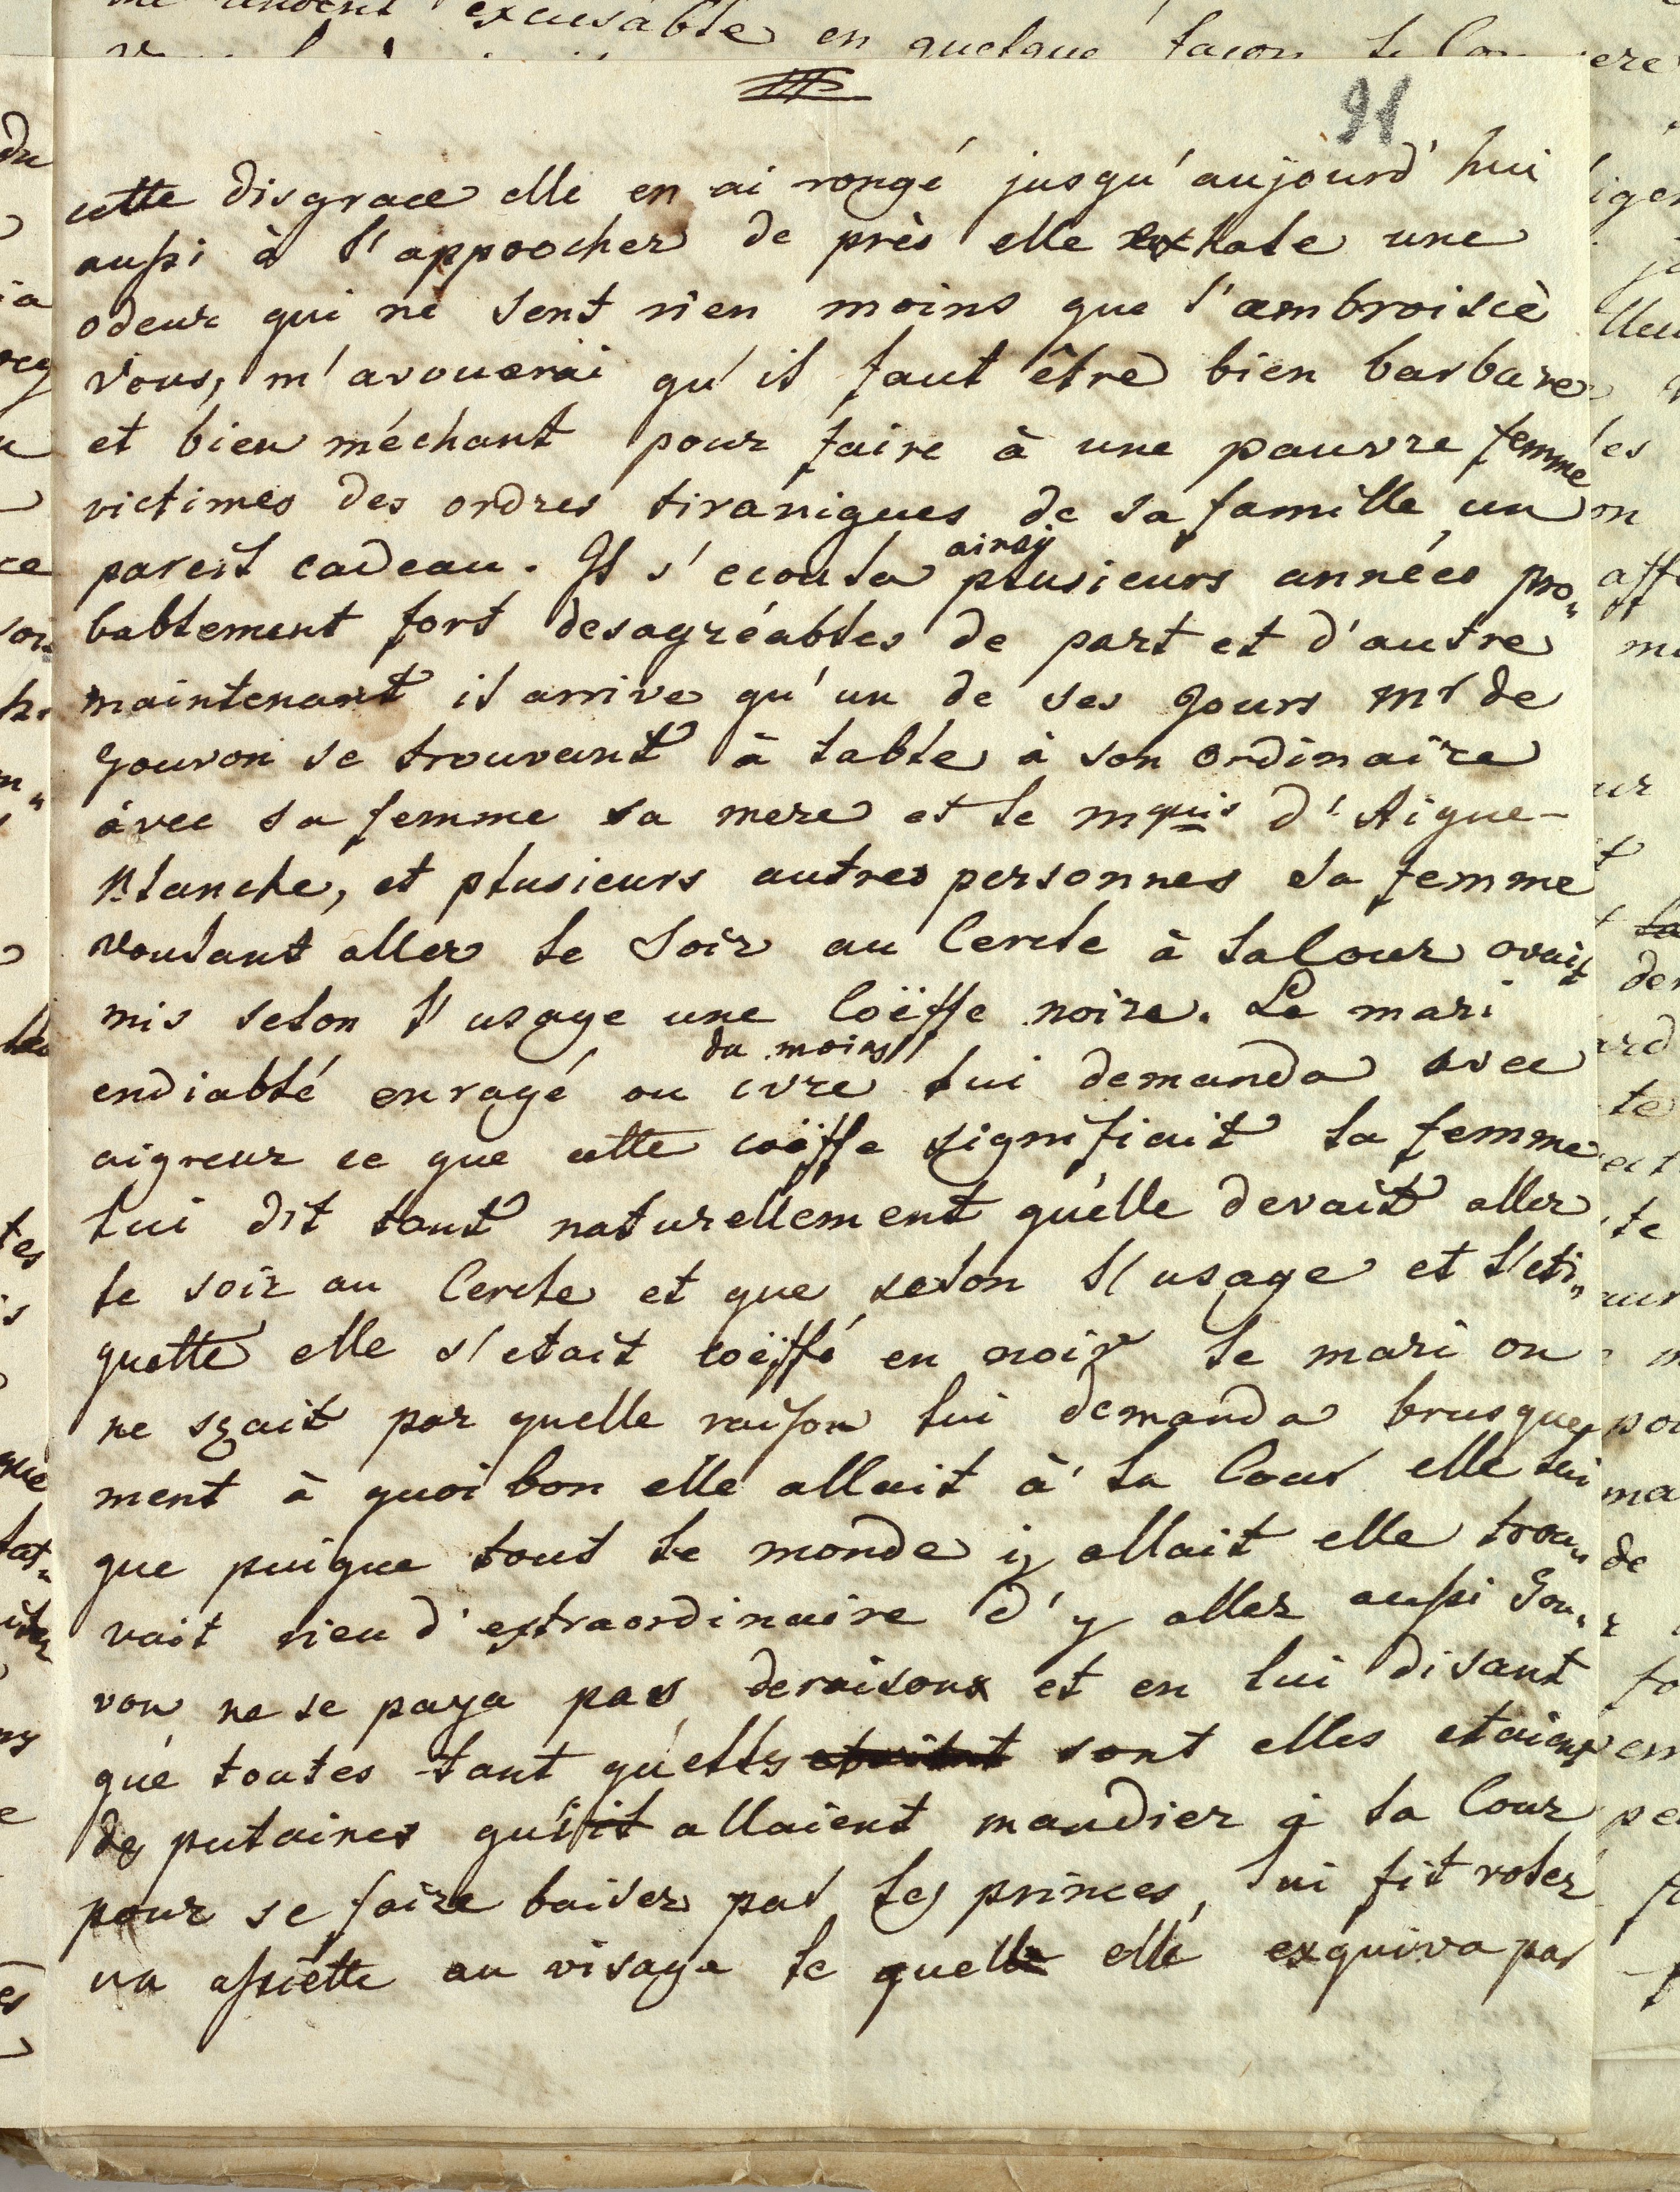 91
cette disgrace elle en ai rongé jusqu'aujourd'hui
aussi à l'approcher de près elle exhale une
odeur qui ne sent rien moins que l'ambroisie
vous, m'avouerai qu'il faut être bien barbare
et bien méchant pour faire à une pauvre femme
victimes des ordres tiraniques de sa famille un
pareil cadeau. Il s'ecoula ainsy plusieurs années pro„
bablement fort desagréables de part et d'autre
maintenant il arrive qu'un de ses Jours Mr de
Gouvon se trouvant à table à son ordinaire
avec sa femme sa mere et le mquis d'Aigue-
Blanche, et plusieurs autres personnes sa femme
voulant aller le soir au Cercle à la Cour avait
mis selon l'usage une Coëffe noire. Le mari
endiablé enragé ou du moins ivre lui demanda avec
aigreur ce que cette coëffe signifiait la femme
lui dit tout naturellement qu'elle devait aller
le soir au Cercle et que selon l'usage et l'eti„
quette elle s'etait coëffé en noir le mari on
ne sçait par quelle raison lui demanda brusque„
ment à quoi bon elle allait à la Cour elle lui
que puique tout le monde y allait elle trou„
vait rien d'extraordinaire d'y aller aussi Gou„
von ne se paya pas de raisons et en lui disant
que toutes tant qu'elles sont elles etaient
des putaines qui allaient mandier à la Cour
pour se faire baiser par les princes, lui fit voler
un assiette au visage le quelle elle exquiva par